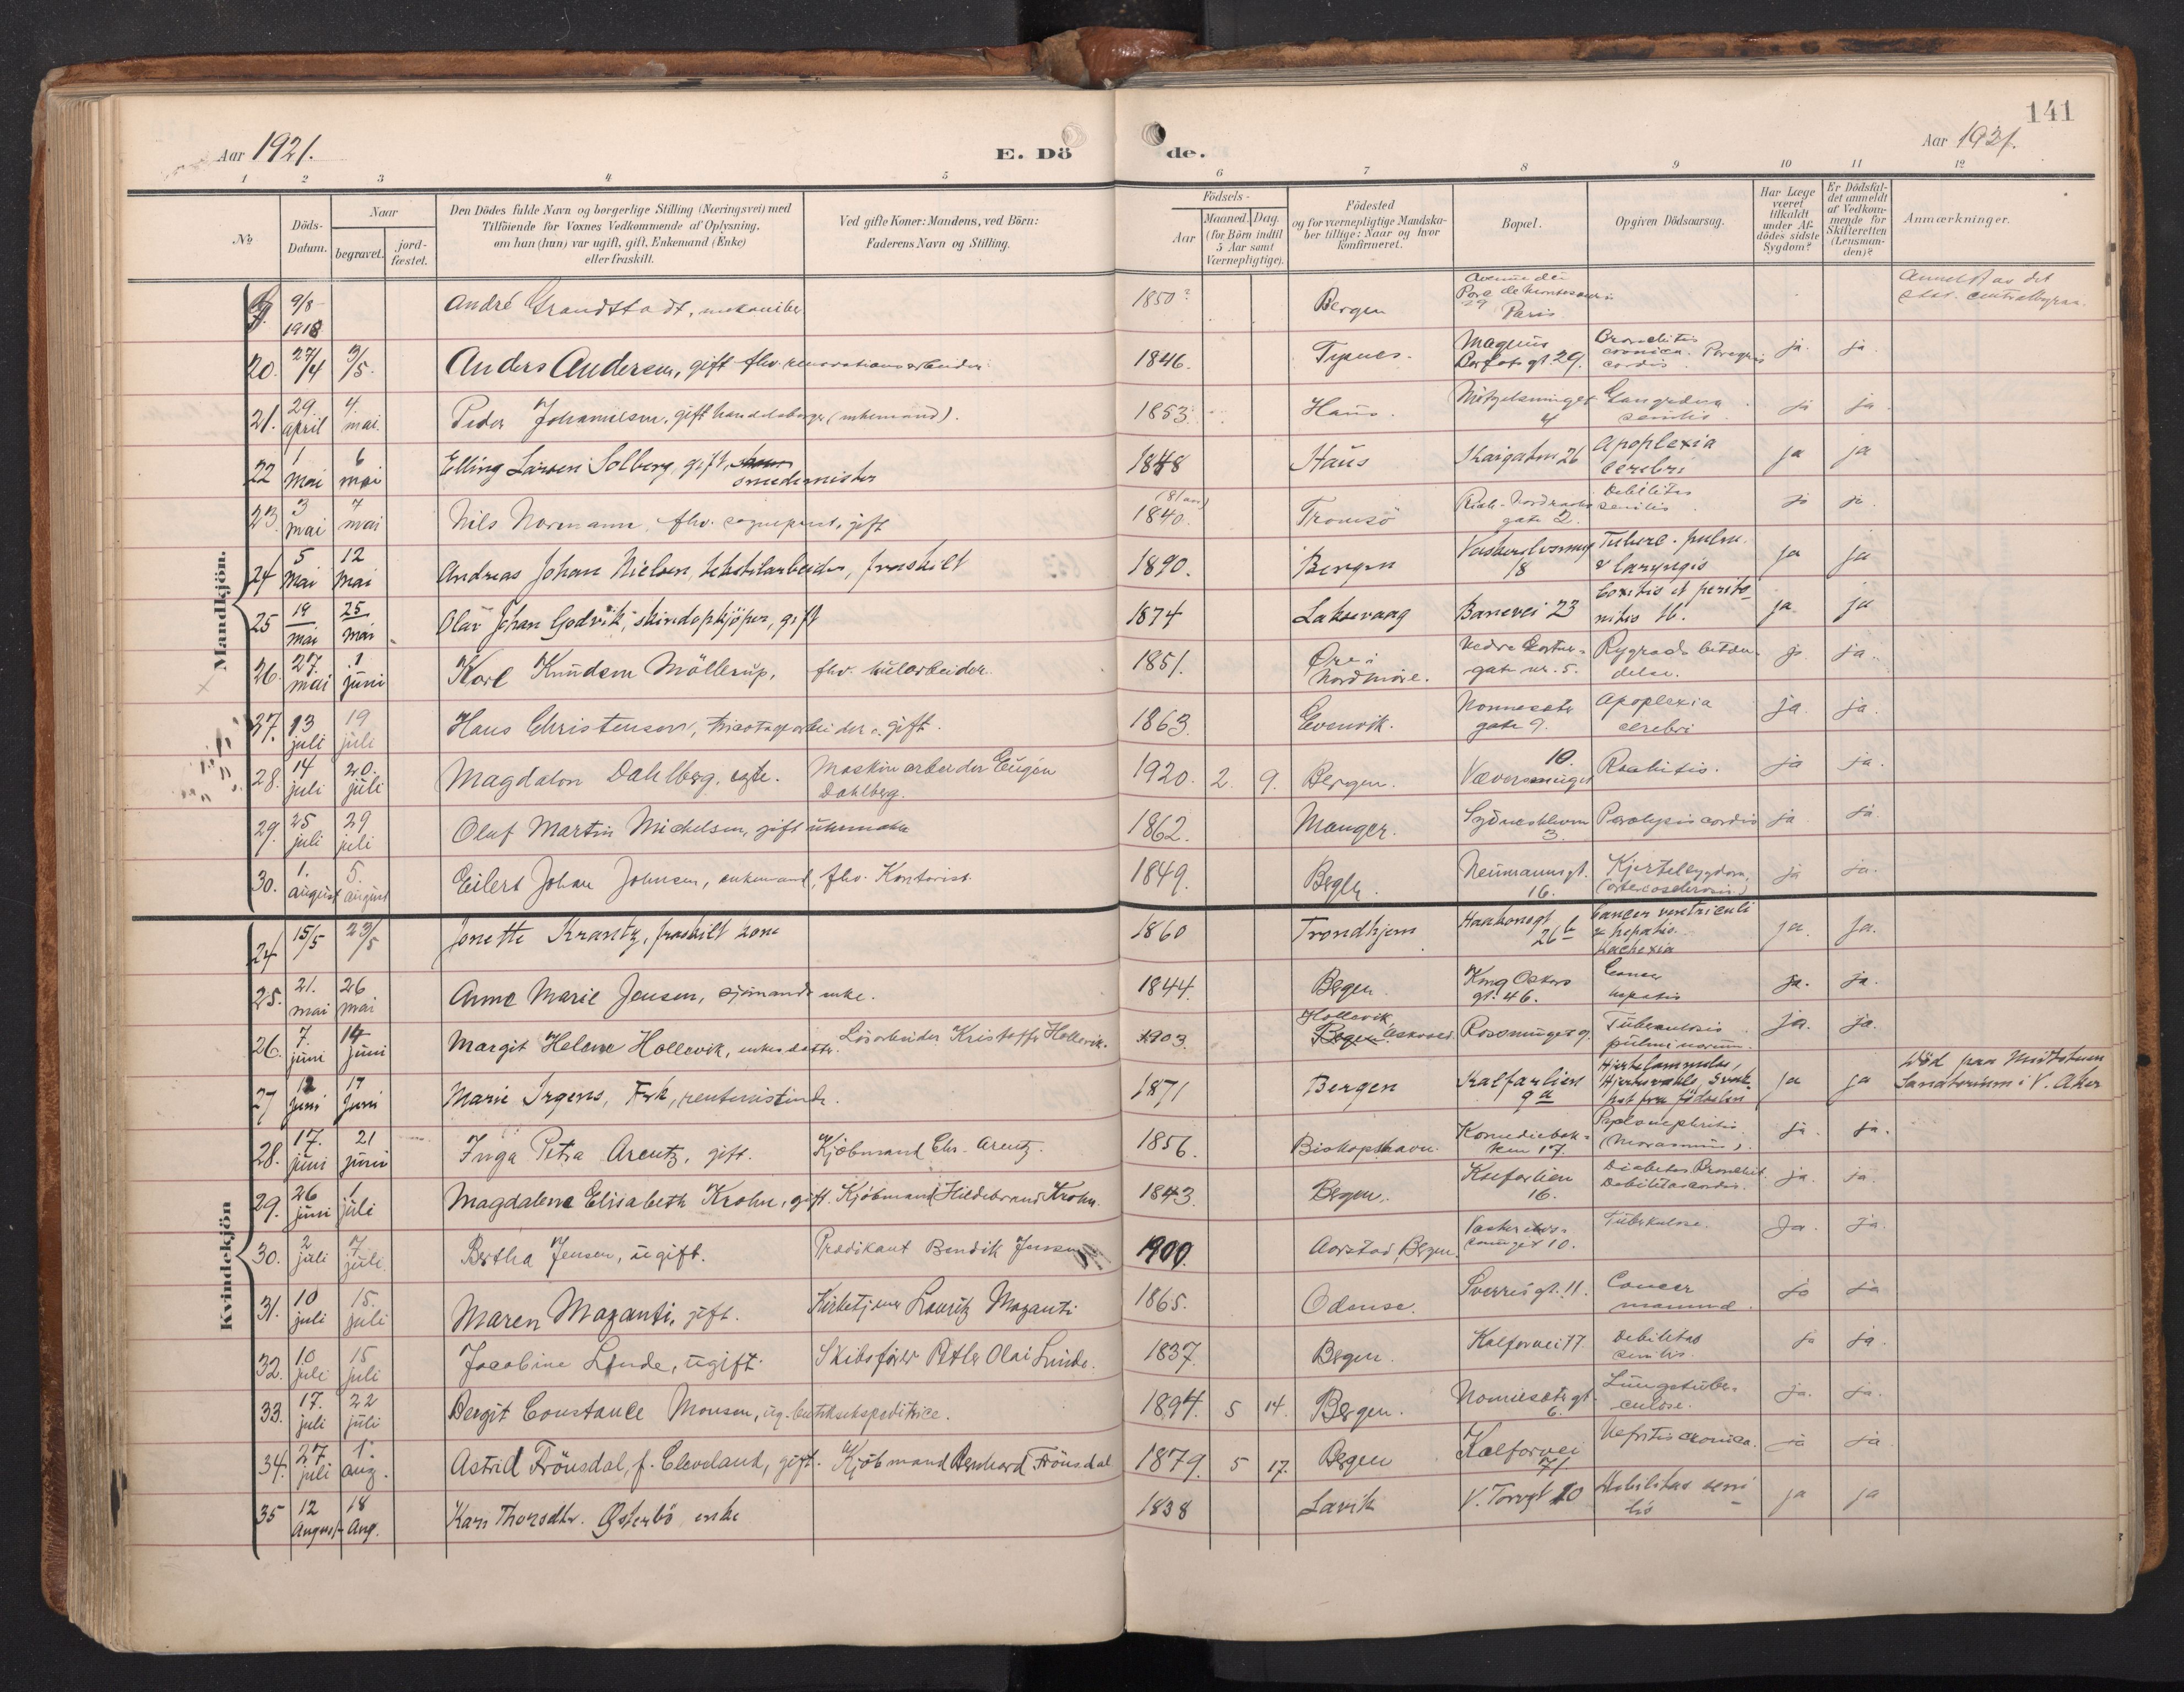 141
Aar 1921.
E. Dö
de.
Aar 1921.
1 2 3 4 5 6 7 8 9 10 11 12
No
Döds-
Datum.
Naar
begravet.
jord-
fæstet.
Den Dödes fulde Navn og borgerlige Stilling (Næringsvei) med
Tilföiende for Voxnes Vedkommende af Oplysning,
om han (hun) var ugift, gift, Enkemand (Enke)
eller fraskilt.
Ved gifte Koner: Mandens, ved Börn:
Faderens Navn og Stilling.
Födsels-
Aar
Maaned.
Dag.
(for Börn indtil
5 Aar samt
Værnepligtige).
Födested
og for værnepligtige Mandska-
ber tillige: Naar og hvor
konfirmeret.
Bopæl.
Opgiven Dödsaarsag.
Har Læge
været
tilkaldt
under Af-
dödes sidste
Sygdom?
Er Dödsfal-
det anmeldt
af Vedkom-
mende for
Skifteretten
(Lensman-
den)?
Anmærkninger.
Mandkjön.
9/8 1918 André Grandstadt, mekaniker 1850? Bergen 29 Paris
20. 27/4 3/5. Anders Andersen, gift 1846. Magnus Barfots gt. 29. ja. ja.
21. 29 april 4. mai. Peder Johannesen, gift handelsborger 1853. Haus. 4 ja ja.
22 1 mai 6 mai Elling Larsen Solberg, gift, smedemester 1848 Haus Skaigaten 26 Apoplexia cerebri ja ja
23. 3 mai 7 mai Nils Normann, fhv. sogneprest, gift (81 aar) 1840. Tromsö gate 2. Debilitas senilis ja ja.
24 5 mai 12 mai Andreas Johan Nielsen, tekstilarbeider, fraskilt 1890. Bergen 18 Tuberc. pulm. & laryngis ja ja
25 19 mai 25 mai Olav Johan Godvik, skindopkjöper, gift 1874 Laksevaag Banevei 23 Coxitis et peritonitis tb. ja ja
26. 27. mai 1 juni Karl Knudsen Möllerup, fhv. kularbeider. 1851. Öre i Nordmöre. gate nr. 5. Rygrads betændelse. ja ja.
27. 13 juli 19 juli Hans Christensen, trikotagearbeider, gift. 1863. Evenvik. Nonneseter gate 9. Apoplexia cerebri ja. ja.
28. 14 juli 20. juli Magdalon Dahlberg, egte. Maskinarbeider Eugén Dahlberg. 1920. 2. 9. Bergen. Væversmuget 10. Rachitis. ja ja.
29. 25 juli 29 juli Oluf Martin Michelsen, gift 1862. Manger. 3. Paralysis cordis ja ja.
30. 1. august 5. august Eilert Johan Johnsen, enkemand, fhv. Kontorist. 1849. Neumannsgt. 16. Kjertelsygdom, ja ja.
Kvindekjön
24 15/5 23/5 Jonette Krantz, fraskilt kone 1860 Trondhjem Haakonsgt 26 b Cancer ventriculi & hepatis. Kachexia ja. ja.
25. 21. mai 26 mai Anne Marie Jensen, sjömands enke. 1844. Bergen. Kong Oskars gt. 46. Cancer hepatis ja. ja.
26. 7. juni 14 juni Margit Helene Hollevik, Lösarbeider Kristoffer Hollevik. 1903. Hollevik, Askvold. Rosesmuget 9. Tuberculosis pulmonum. ja. ja.
27 12 juni 17 juni Marie Irgens, Frk, rentenistinde. 1871 Bergen Kalfarlien 9 a Hjertelammelse, fra födselen ja ja Död paa Midtstuen Sanatorium i V. Aker
28. 17. juni 21 juni Inga Petra Arentz, gift. Kjöbmand Chr. Arentz. 1856. Biskopshavn. Komediebakken 17. ja. ja.
29. 26 juni 1 juli Magdalene Elisabeth Krohn, gift. Kjöbmand Hildebrand Krohn. 1843. Bergen. Kalfarlien 16. Diabetes. Bronchit. Debilitas cordis. ja. ja.
30. 2 juli 7 juli. Bertha Jensen, ugift. Prædikant Bendik Jensen 1900. Aarstad, Bergen. 10. Tuberkulose. Ja. ja.
31. 10 juli 15. juli Maren Mazanti, gift. Kirketjener Lauritz Mazanti 1865. Odense. Sverresgt. 11. Cancer mammae. ja ja
32. 10 juli 15 juli Jacobine Linde, ugift. Skibsförer Petter Olai Linde. 1837. Bergen. Kalfarvei 77. Debilitas senilis. ja ja.
33. 17. juli 22 juli Bergit Constance Monsen, ug. butikekspeditrice. 1894. 5 14. Bergen. Nonnesetergt. 6. Lungetuberculose. ja. ja.
34. 27. juli 1. aug. Astrid Frönsdal, f. Cleveland, gift. Kjöbmand Bernhard Frönsdal 1879. 5 17. Bergen Kalfarvei 71. Nefritis cronica. ja ja.
35 12 August 18 Aug. Kari Thorsdtr. Österbö enke 1838 Lavik V. Torvgt 20 Debilitas senilis ja ja